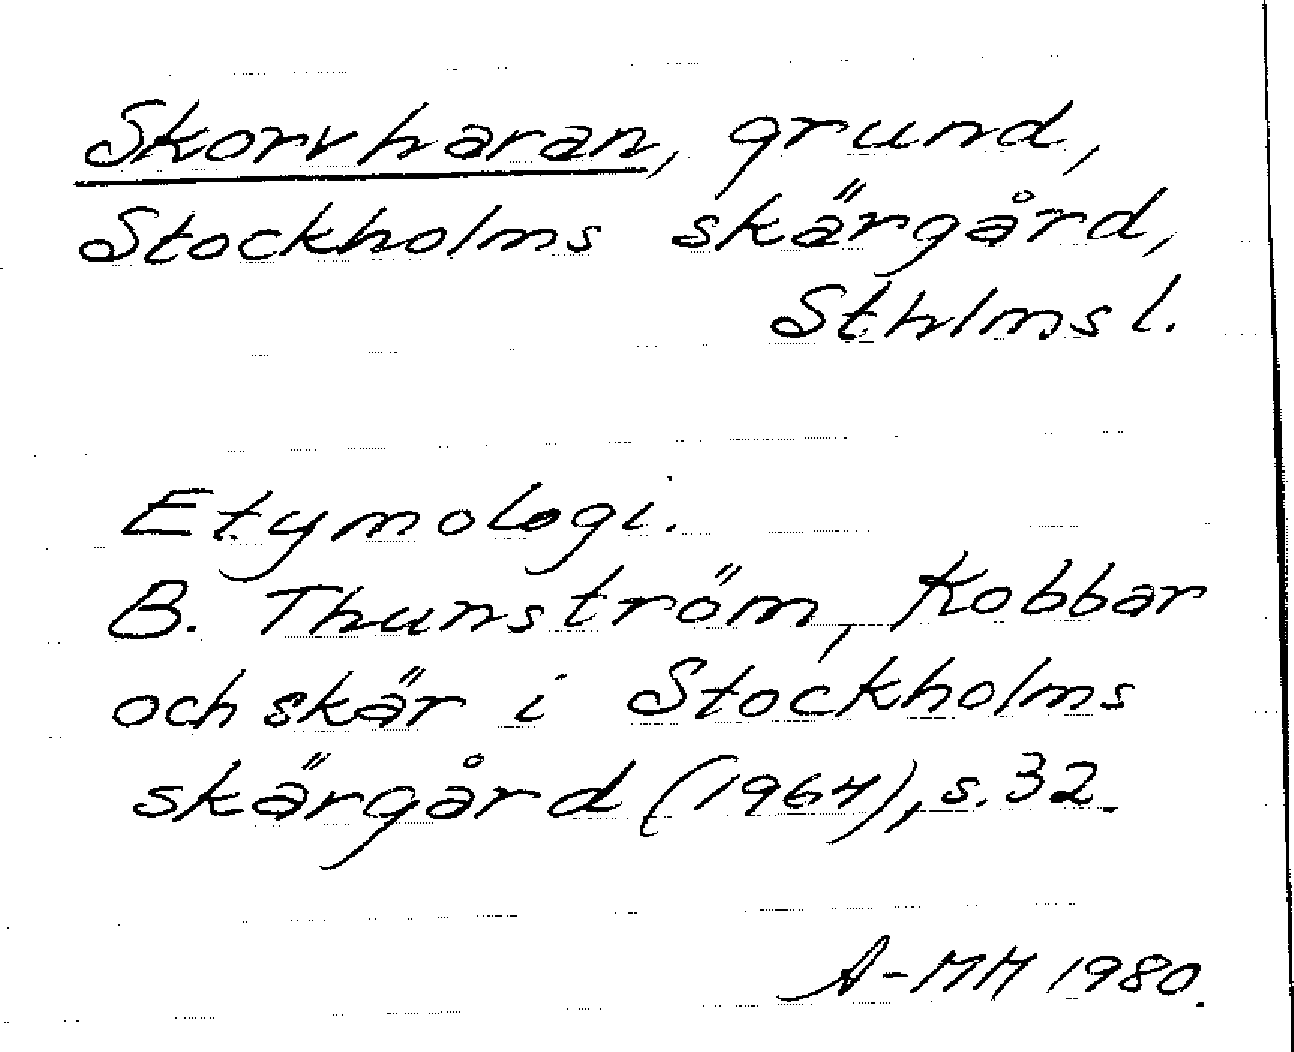 Skorvharan, grund,
Stockholms skärgård,
Sthlms l.
Etymologi.
B. Thunström, Kobbar
och skär i Stockholms
skärgård (1964), s. 32.
A-MM 1980.